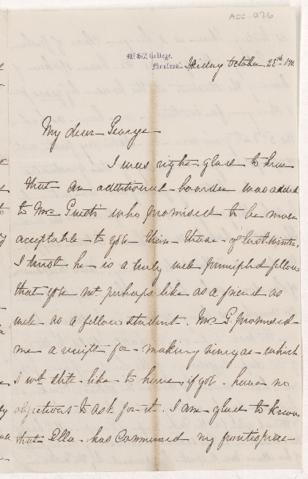 McGill College,
Montreal. Friday October 25th
My dear George
I was right glad to hear
that an additional boarder was added
to Mrs. G who promised to be more
acceptable to you than those of last winter.
I trust he is a truly well principled fellow
that you wd. perhaps like as a friend as
well as a fellow student. Mrs. G. promised
me a receipt for making vinegar which
I wd. like to have, if you have no
objections to ask for it. I am glad to know
that Ella has commenced my